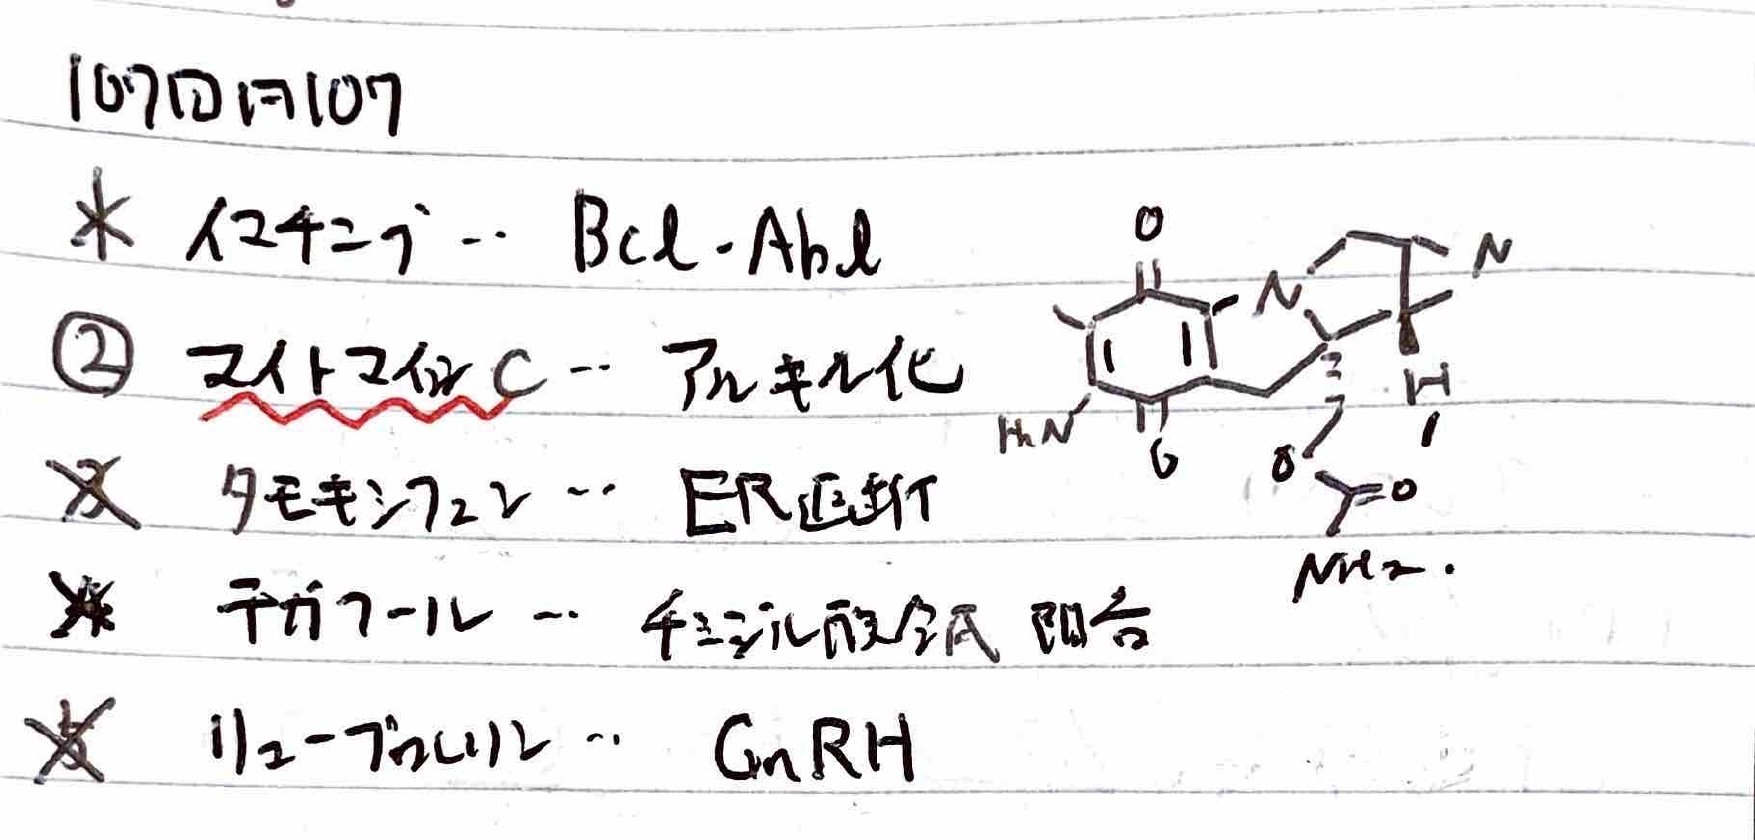 107回問107
イマチニブ… Bcl-Abl
② マイトマイシンC… アルキル化
タモキシフェン… ER遮断
テガフール… チミジル酸合成 阻害
リュープロレリン… GnRH
O
N
N
H
H₂N
O
O
O
NH₂.